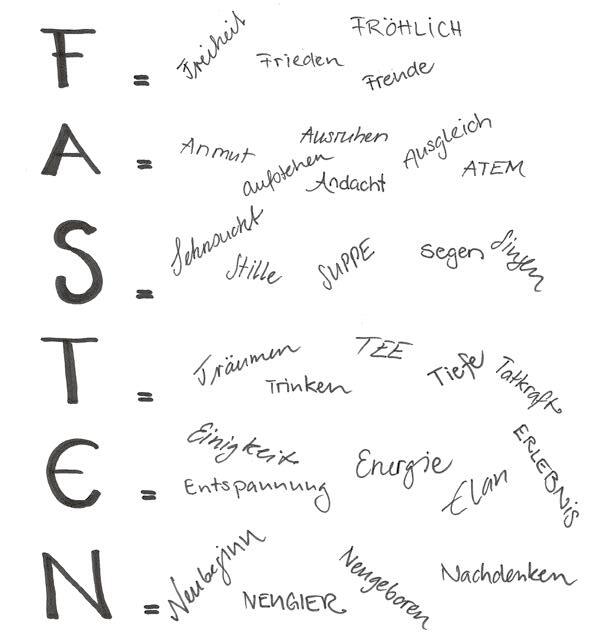 F = Freiheit Frieden FRÖHLICH Freude
A = Anmut Ausruhen aufstehen Andacht Ausgleich ATEM
S = Sehnsucht Stille SUPPE segen Singen
T = Träumen Trinken TEE Tiefe Tatkraft
E = Einigkeit Entspannung Energie Elan ERLEBNIS
N = Neubeginn NEUGIER Neugeboren Nachdenken